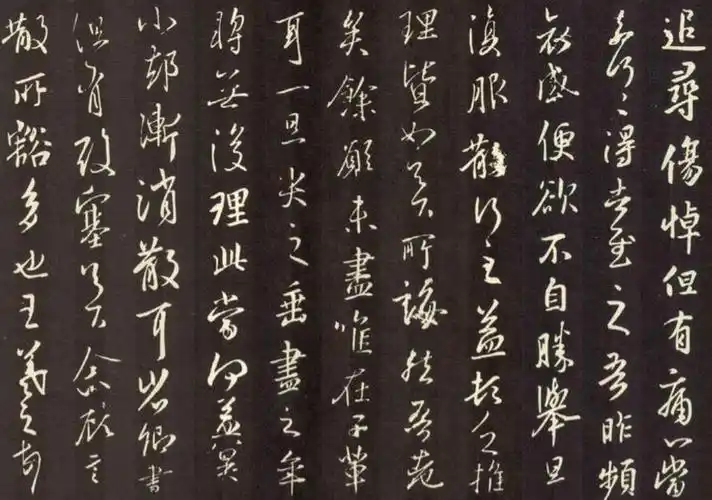 追尋傷悼但有痛心當
奈何奈何得告慰之吾昨頻
哀感便欲不自勝舉旦
復服散行之益頓乏推
理皆如足下所誨然吾老
矣餘願未盡唯在子輩
耳一旦哭之垂盡之年
將無復理此當何益冀
小卻漸消散耳省卿書
但有酸塞足下念顧言
散所豁多也王羲之頓首